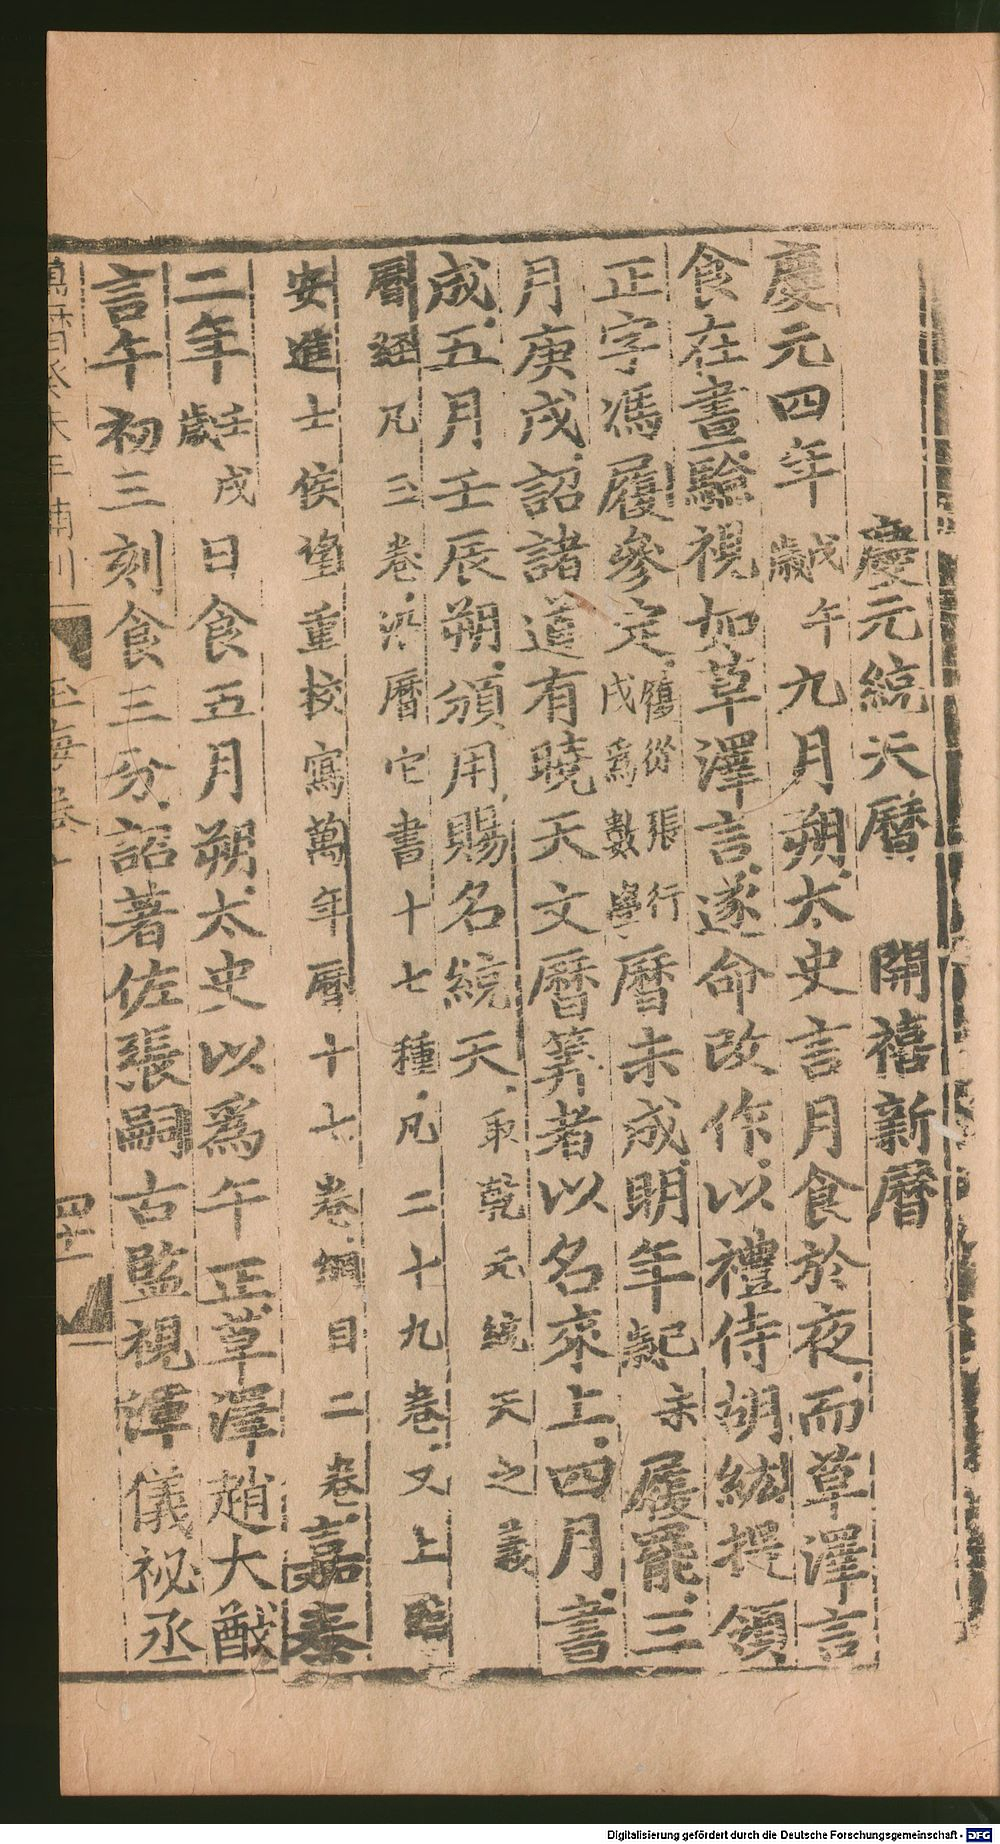 慶元統天曆　開禧新曆
慶元四年歲戊午九月朔太史言月食於夜而草澤言
食在晝驗視如草澤言遂命改作以禮侍胡紘提領
正字馮履參定履從張行戊爲數學曆未成明年己未歲履罷三
月庚戌詔諸道有曉天文曆筭者以名來上四月書
成五月壬辰朔頒用賜名統天取乾元統天之義
曆經凡三卷 曆它書十七種凡二十九卷又上
安進士侯望重校寫萬年曆十七卷綱目二卷嘉泰
二年歲壬戌日食五月朔太史以爲午正草澤趙大猷
言午初三刻食三分詔著佐張嗣古監視渾儀祕丞
萬曆癸未年補刊 玉海卷十 四十
Digitalisierung gefördert durch die Deutsche Forschungsgemeinschaft - DFG